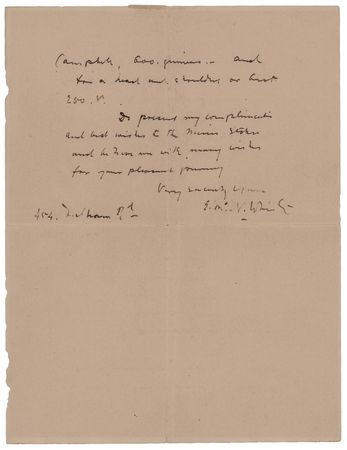 Campbell, 600. guineas. - and
for a head and shoulders or bust
250. gs.
Do present my compliments
and best wishes to the Misses
and believe me with many wishes
for your pleasant journey
Very sincerely yours
454. Fulham Rd